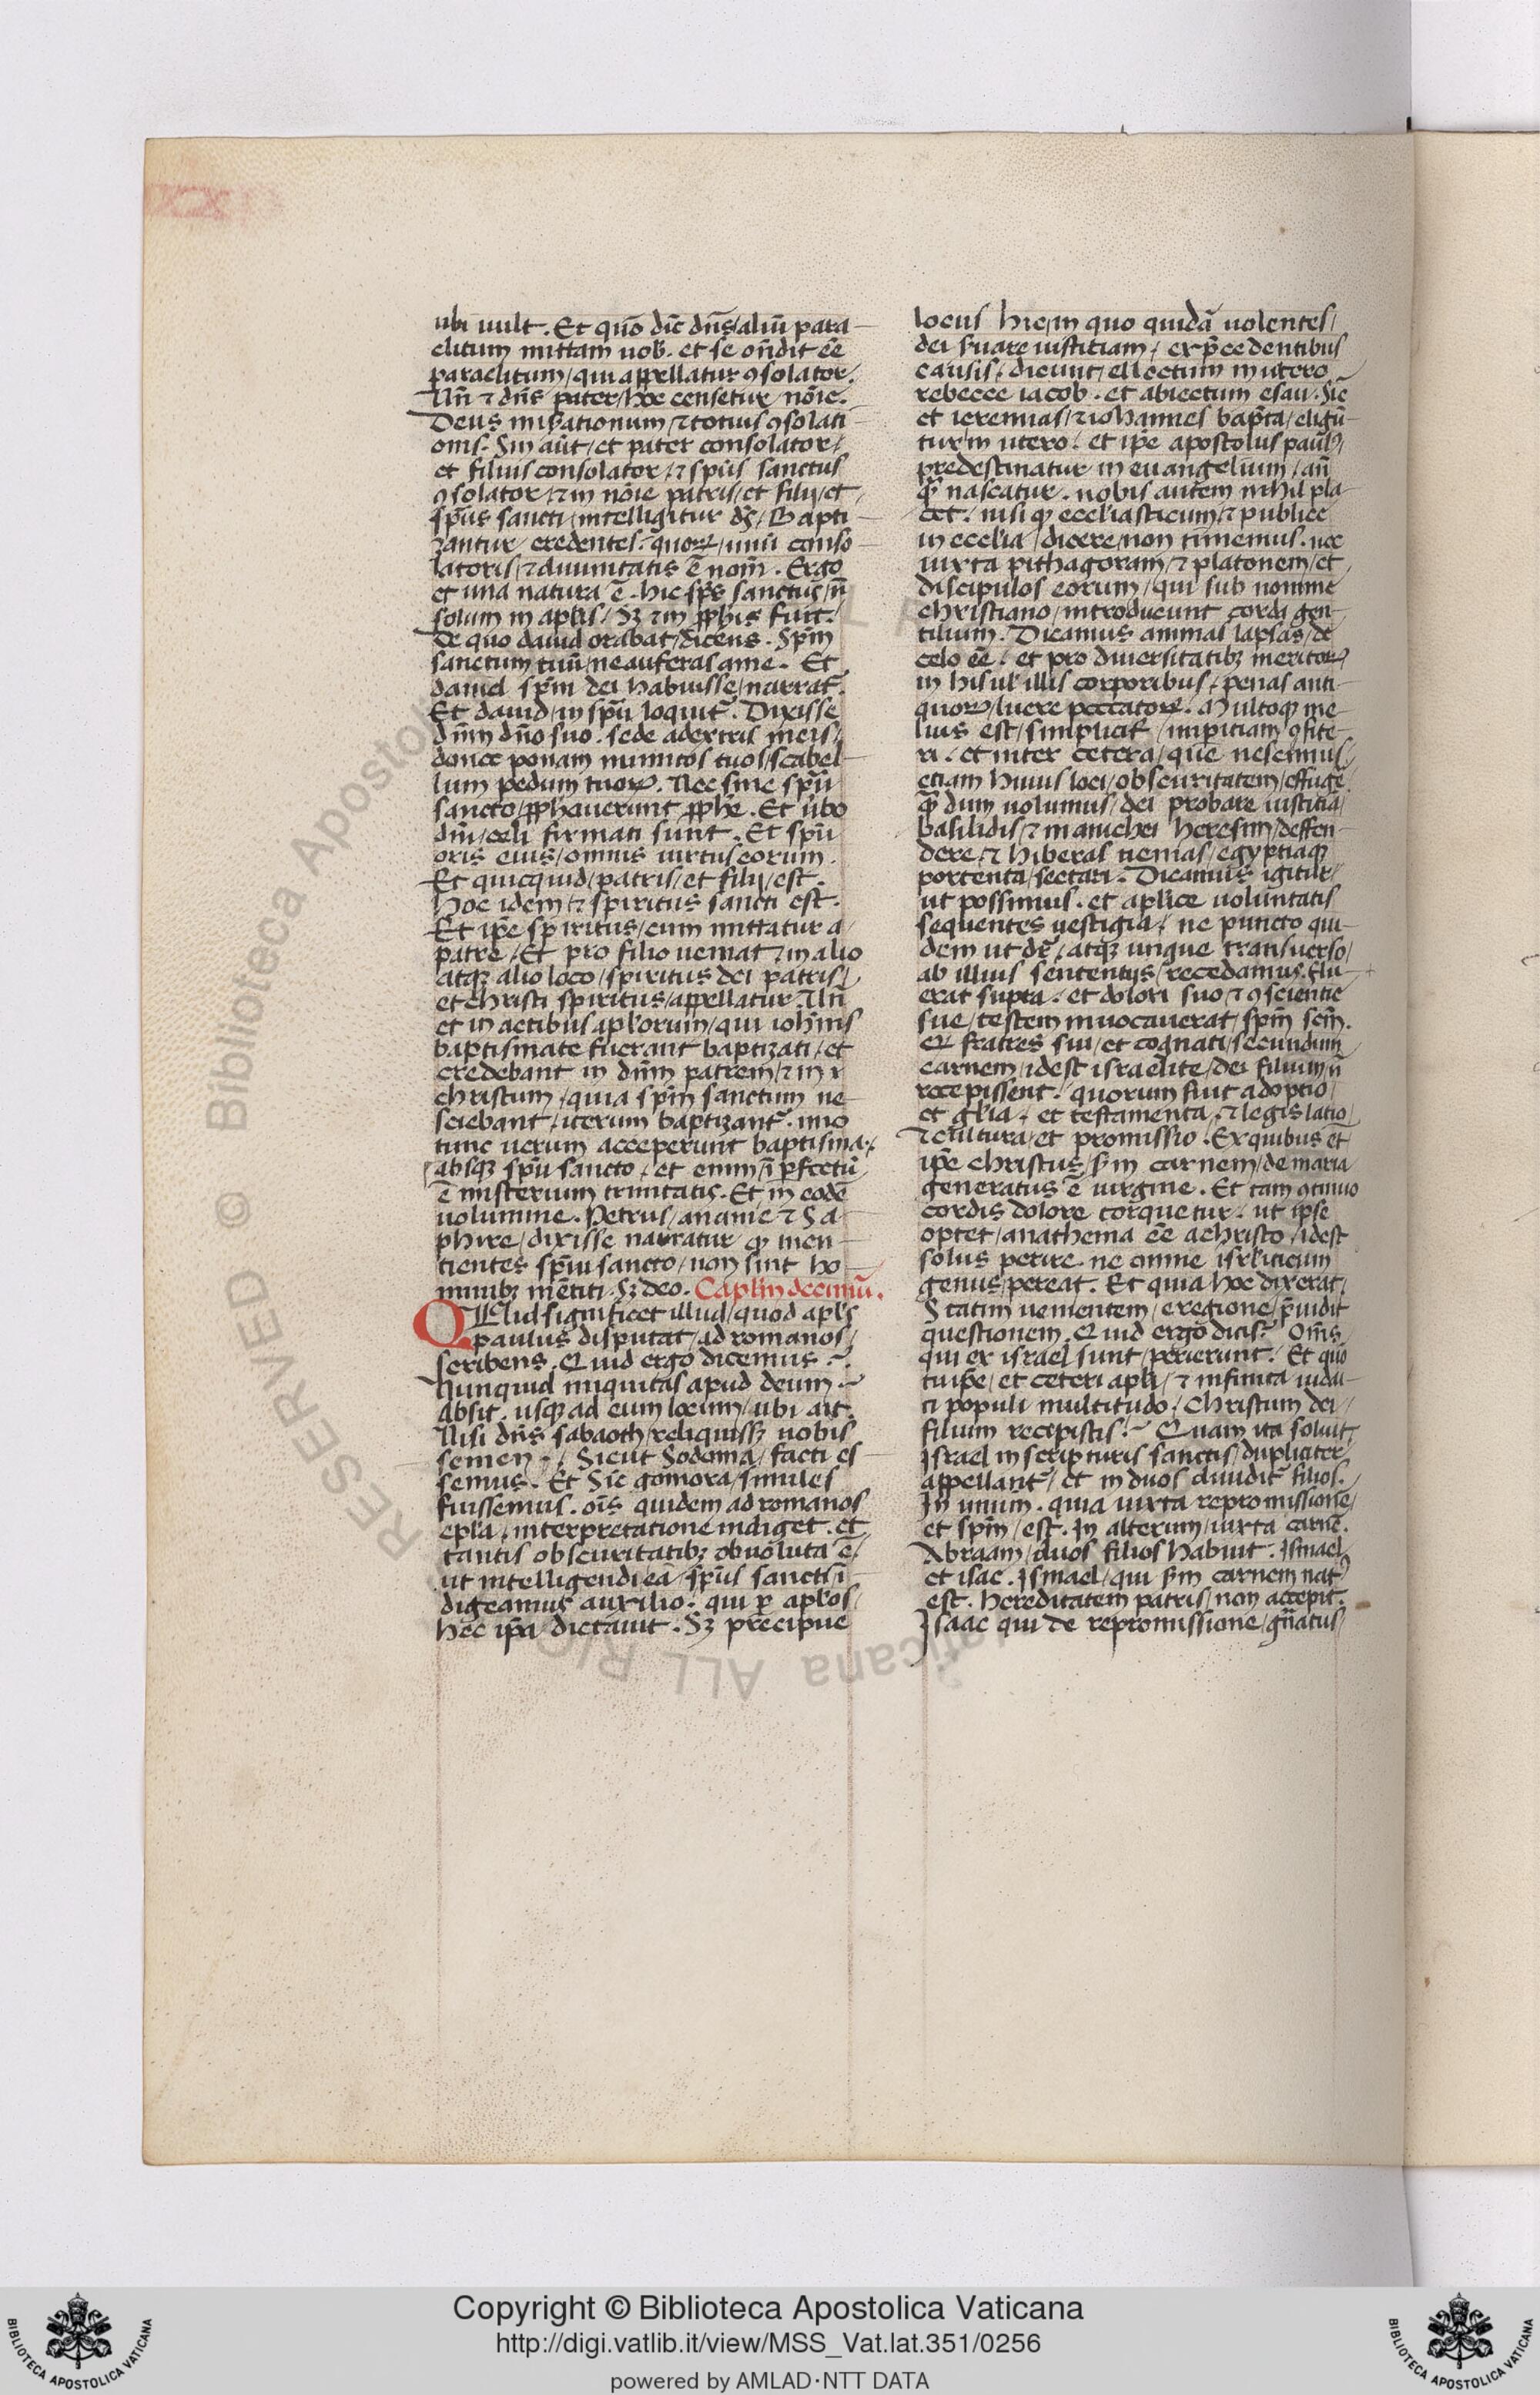 ubi uult. Et quō dic̄ dn̄s/aliū para-
clitum mittam uob̄. et se on̄dit ēē
paraclitum/qui appellatur ꝯsolator.
Un̄ ⁊ dn̄s pater/hoc censetur nōie.
Deus misẽationum/⁊totius ꝯsolati-
onis. Sin aūt/et pater consolator/
et filius consolator/⁊ spūs sanctus
ꝯsolator/⁊in nōie patris/et filij/et
spūs sancti/intelligitur ds̄/Bapti-
zantur credentes. quoꝝ/unū conso-
latoris/⁊diuinitatis ē nom̄. Ergo
et una natura ē. hic sps̄ sanctus/n̄
solum in aplis/Sꝫ ⁊in ꝓphis fuit.
De quo dauid orabat/dicens. Spm̄
sanctum tuū/ne auferas ame. Et
daniel spm̄ dei habuisse/narrat̄.
Et dauid/in spū loquit̄. Dixisse
dn̄m dn̄o suo. sede adextris meis/
donec ponam inimicos tuos/scabel-
lum pedum tuoꝝ. Nec sine spū
sancto/ꝓphauerunt ꝓphe. Et ūbo
dn̄i/celi firmati sunt. Et spū
oris eius/omnis uirtus eorum.
Et quicquid/patris/et filij/est.
hoc idem ⁊ spiritus sancti est.
Et ip̄e spiritus/cum mittatur a/
patre/Et pro filio ueniat ⁊in alio
atqꝫ alio loco/spiritus dei patris/
et christi spiritus/appellatur. Un̄
et in actibus apl̄orum/qui ioh̄nis
baptismate fuerant baptizati/et
credebant in dn̄m patrem/⁊ in
christum/quia spm̄ sanctum ne-
sciebant/iterum baptizant̄. imo
tunc uerum acceperunt baptisma.
absqꝫ spū sancto/et enim/ī ꝑfectū
ē misterium trinitatis. Et in eodē
uolumine. Petrus/ananie ⁊ Sa-
phire/dixisse narratur ꝙ men-
tientes spūi sancto/non sint ho-
minibꝫ mētiti. Sꝫ deo. Caplm̄ decimū.
QUid significet illud/quod apl's
paulus disputat/ad romanos/
scribens. Quid ergo dicemus?
Nunquid iniquitas apud deum?
Absit. usqꝫ ad eum locum/ubi ait.
Nisi dn̄s sabaoth/reliquissꝫ nobis
semen/Sicut Sodoma/facti es-
semus. Et Sic gomora/similes
fuissemus. oīs quidem ad romanos
epl̄a/interpretatione indiget. et
tantis obscuritatibꝫ obuoluta ē/
ut intelligendi eā/spūs sancti ī-
digeamus auxilio. qui ꝑ apl'os/
hec ip̄a dictauit. Sꝫ precipue
locus hic/in quo quidā uolentes/
dei ẜuare iustitiam/exp̄cedentibus
causis/dicunt/ellectum inutero
rebecce iacob. et abiectum esau. Sic
et ieremias/⁊iohannes bapt̄a/eligū-
tur in utero. et ip̄e apostolus paul9/
predestinatur in euangelium/an̄
ꝙ nascatur. nobis autem nihil pla-
cet. nisi ꝙ ecclesiasticum/⁊ publice
in eccl'ia/dicere/non timemus. nec
iuxta pithagoram/⁊ platonem/et
discipulos eorum/qui sub nomine
christiano/introducunt corda gen-
tilium. Dicamus animas lapsas/de
celo ēē. et pro diuersitatibꝫ meritoꝝ/
in his ul' illis corporibus/penas anti-
quoꝝ/luere peccatoꝝ. Multoqꝫ me-
lius est/simplicit̄/impitiam ꝯfite-
ri. et inter cetera/que nescimus/
etiam huius loci/obscuritatem/effuge.
ꝙ dum uolumus/dei probare iustitiā/
basilidis/⁊ manichei heresim/deffen-
dere/⁊ hiberas nenias/egyptiaqꝫ
portenta/sectari. Dicamus igitur/
ut possimus. et aplice uoluntatis
sequentes uestigia/ne puncto qui-
dem ut dr̄/atqꝫ ungue transuerso/
ab illius sententijs/recedamus. Flu-
erat supra. et dolori suo/⁊ ꝯscientie
sue/testem inuocauerat/spm̄ scm̄.
Q fratres sui/et cognati/secundum
carnem/idest israelite/dei filium/n̄
recepissent. quorum fuit adoptio/
et gl'ia/et testamenta/⁊ legislatio
⁊cultura/et promissio. Ex quibus et
ip̄e christus/ẜm carnem/de maria
generatus ē uirgine. Et tam ꝯtinuo
cordis dolore torquetur. ut ipse
optet/anathema ēē achristo/idest
solus perire. ne omne isrl̄iticum
genus/pereat. Et quia hoc dixerat/
Statim uenientem/eregione/p̄uidit
questionem. Quid ergo dicis? Om̄s
qui ex israel sunt/perierunt. Et quō
tuip̄e/et ceteri apl'i/⁊ infinita iudai-
ci populi multitudo/Christum dei
filium recepistis? Quam ita soluit.
Israel in scripturis sanctis/dupliciter
appellant̄/et in duos diuidit̄ filios.
In unum. quia iuxta repromissionē/
et spm̄/est. In alterum/iuxta carnē.
Abraam/duos filios habuit. Ismael
et isac. Ismael/qui ẜm carnem nat9
est. hereditatem patris/non accepit.
Isaac qui de repromissione/gn̄atus/
Copyright © Biblioteca Apostolica Vaticana
http://digi.vatlib.it/view/MSS_Vat.lat.351/0256
powered by AMLAD·NTT DATA
BIBLIOTECA APOSTOLICA VATICANA
BIBLIOTECA APOSTOLICA VATICANA